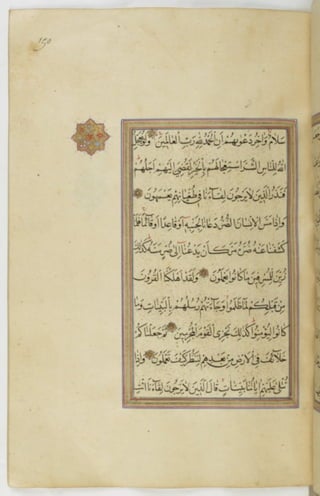 سَلَامٌ وَآخِرُ دَعْوٰيهُمْ اَنِ الْحَمْدُ لِلّٰهِ رَبِّ الْعَالَمِينَ وَلَوْ يُعَجِّلُ
اللّٰهُ لِلنَّاسِ الشَّرَّ اسْتِعْجَالَهُمْ بِالْخَيْرِ لَقُضِيَ اِلَيْهِمْ اَجَلُهُمْ
فَنَذَرُ الَّذِينَ لَا يَرْجُونَ لِقَاءَنَا فِي طُغْيَانِهِمْ يَعْمَهُونَ
وَاِذَا مَسَّ الْاِنْسَانَ الضُّرُّ دَعَانَا لِجَنْبِهِ اَوْ قَاعِدًا اَوْ قَائِمًا فَلَمَّا
كَشَفْنَا عَنْهُ ضُرَّهُ مَرَّ كَاَنْ لَمْ يَدْعُنَا اِلَى ضُرٍّ مَسَّهُ كَذٰلِكَ
زُيِّنَ لِلْمُسْرِفِينَ مَا كَانُوا يَعْمَلُونَ وَلَقَدْ اَهْلَكْنَا الْقُرُونَ
مِنْ قَبْلِكُمْ لَمَّا ظَلَمُوا وَجَاءَتْهُمْ رُسُلُهُمْ بِالْبَيِّنَاتِ وَمَا
كَانُوا لِيُؤْمِنُوا كَذٰلِكَ نَجْزِي الْقَوْمَ الْمُجْرِمِينَ ثُمَّ جَعَلْنَاكُمْ
خَلَائِفَ فِي الْاَرْضِ مِنْ بَعْدِهِمْ لِنَنْظُرَ كَيْفَ تَعْمَلُونَ وَاِذَا
تُتْلَى عَلَيْهِمْ اٰيَاتُنَا بَيِّنَاتٍ قَالَ الَّذِينَ لَا يَرْجُونَ لِقَاءَنَا ائْتِ